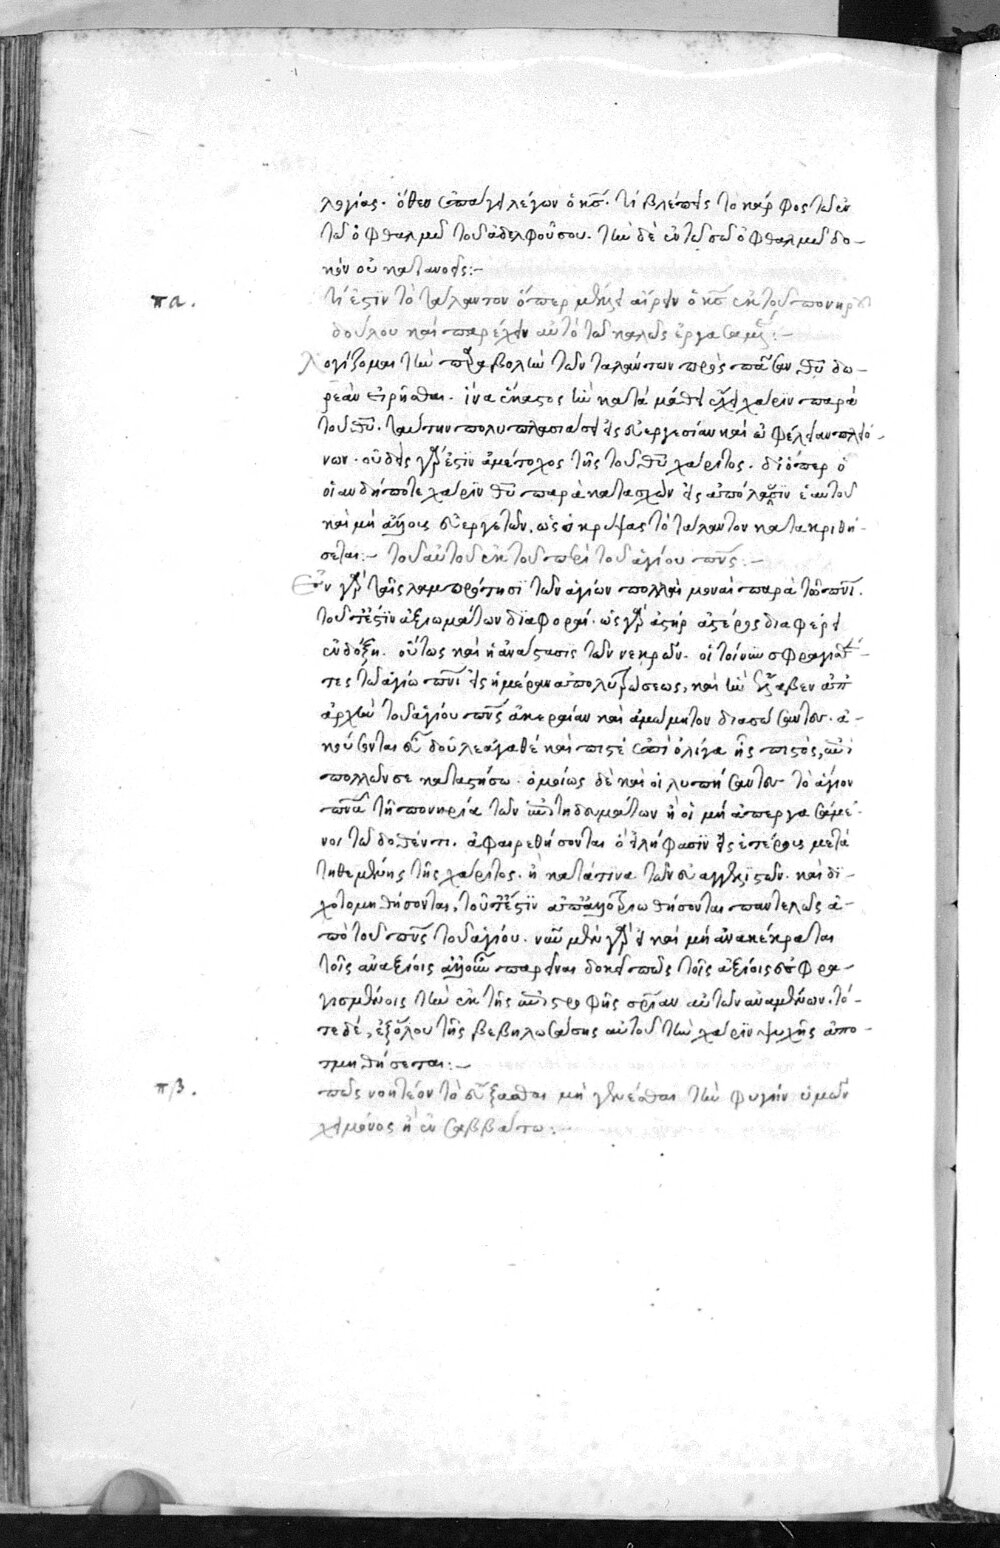 λογίας. ὅθεν ἐπάγει λέγων ὁ κ̅ς̅. τί βλέπεις τὸ κάρφος τὸ ἐν
τῶ ὀφθαλμῶ τοῦ ἀδελφοῦ σου. τὴν δὲ ἐν τῶ σῶ ὀφθαλμῶ δο-
κὸν οὐ κατανοεῖς:-
πα. τί ἐστιν τὸ τάλαντον ὅπερ μέλλει αἴρειν ὁ κ̅ς̅ ἐκ τοῦ πονηροῦ
δούλου καὶ παρέχειν αὐτὸ τῶ καλῶς ἐργασαμένω:-
Λογίζομαι τὴν παραβολὴν τῶν ταλάντων πρὸς πᾶσαν θ̅υ̅ δω-
ρεὰν εἰρῆσθαι. ἵνα ἕκαστος ἣν κατὰ μάθει ἔχει χάριν παρὰ
τοῦ θ̅υ̅. ταύτην πολυπλασιάσει εἰς εὐεργεσίαν καὶ ὠφέλειαν πλειό-
νων. οὐδεὶς γάρ ἐστιν ἀμέτοχος τῆς τοῦ θ̅υ̅ χάριτος. διόπερ ὁ
οἱανδήποτε χάριν θ̅υ̅ παρακατασχὼν εἰς ἀπόλαυσιν ἑαυτοῦ
καὶ μὴ ἄλλοις εὐεργετῶν, ὡς ὁ κρύψας τὸ τάλαντον κατακριθή-
σεται:- τοῦ αὐτοῦ ἐκ τοῦ περὶ τοῦ ἁγίου π̅ν̅ς̅:-
Ἐὰν γὰρ ταῖς λαμπρότησι τῶν ἁγίων πολλαὶ μοναὶ παρὰ τῶ π̅ρ̅ι̅.
τουτέστιν ἀξιωμάτων διαφοραί. ὡς γὰρ ἀστὴρ ἀστέρος διαφέρει
ἐν δόξη. οὕτως καὶ ἡ ἀνάστασις τῶν νεκρῶν. οἱ τοίνυν σφραγισθέν-
τες τῶ ἁγίω π̅ν̅ι̅ εἰς ἡμέραν ἀπολυτρώσεως, καὶ ἣν ἔλαβεν ἀπ'
ἀρχὴν τοῦ ἁγίου π̅ν̅ς̅ ἀκεραίαν καὶ ἀμώμητον διασώσαντες. ἀ-
κούσονται εὖ δοῦλε ἀγαθὲ καὶ πιστὲ ἐπὶ ὀλίγα ἦς πιστός, ἐπὶ
πολλῶν σε καταστήσω. ὁμοίως δὲ καὶ οἱ λυπήσαντες τὸ ἅγιον
π̅ν̅α̅ τῆ πονηρία τῶν ἐπιτηδευμάτων ἢ οἱ μὴ ἀπεργασάμε-
νοι τῶ δοθέντι. ἀφαιρεθήσονται ὃ εἰλήφασιν εἰς ἑτέρους μετα-
τιθεμένης τῆς χάριτος. ἢ κατά τινα τῶν εὐαγγελιστῶν. καὶ δι-
χοτομηθήσονται, τουτέστιν ἀπαλλοτριωθήσονται παντελῶς ἀ-
πὸ τοῦ π̅ν̅ς̅ τοῦ ἁγίου. νῦν μὲν γὰρ εἰ καὶ μὴ ἀνακέκραται
τοῖς ἀναξίοις ἀλλ' οὖν παρεῖναι δοκεῖ πως τοῖς ἀξίοις ἐσφρα-
γισμένοις τὴν ἐκ τῆς ἐπιστροφῆς σωτηρίαν αὐτῶν ἀναμένων. τό-
τε δὲ, ἐξ ὅλου τῆς βεβηλωσάσης αὐτοῦ τὴν χάριν ψυχῆς ἀπο-
τμηθήσεται:-
πβ. πῶς νοητέον τὸ εὔξασθαι μὴ γενέσθαι τὴν φυγὴν ὑμῶν
χειμῶνος ἢ ἐν σαββάτω:-